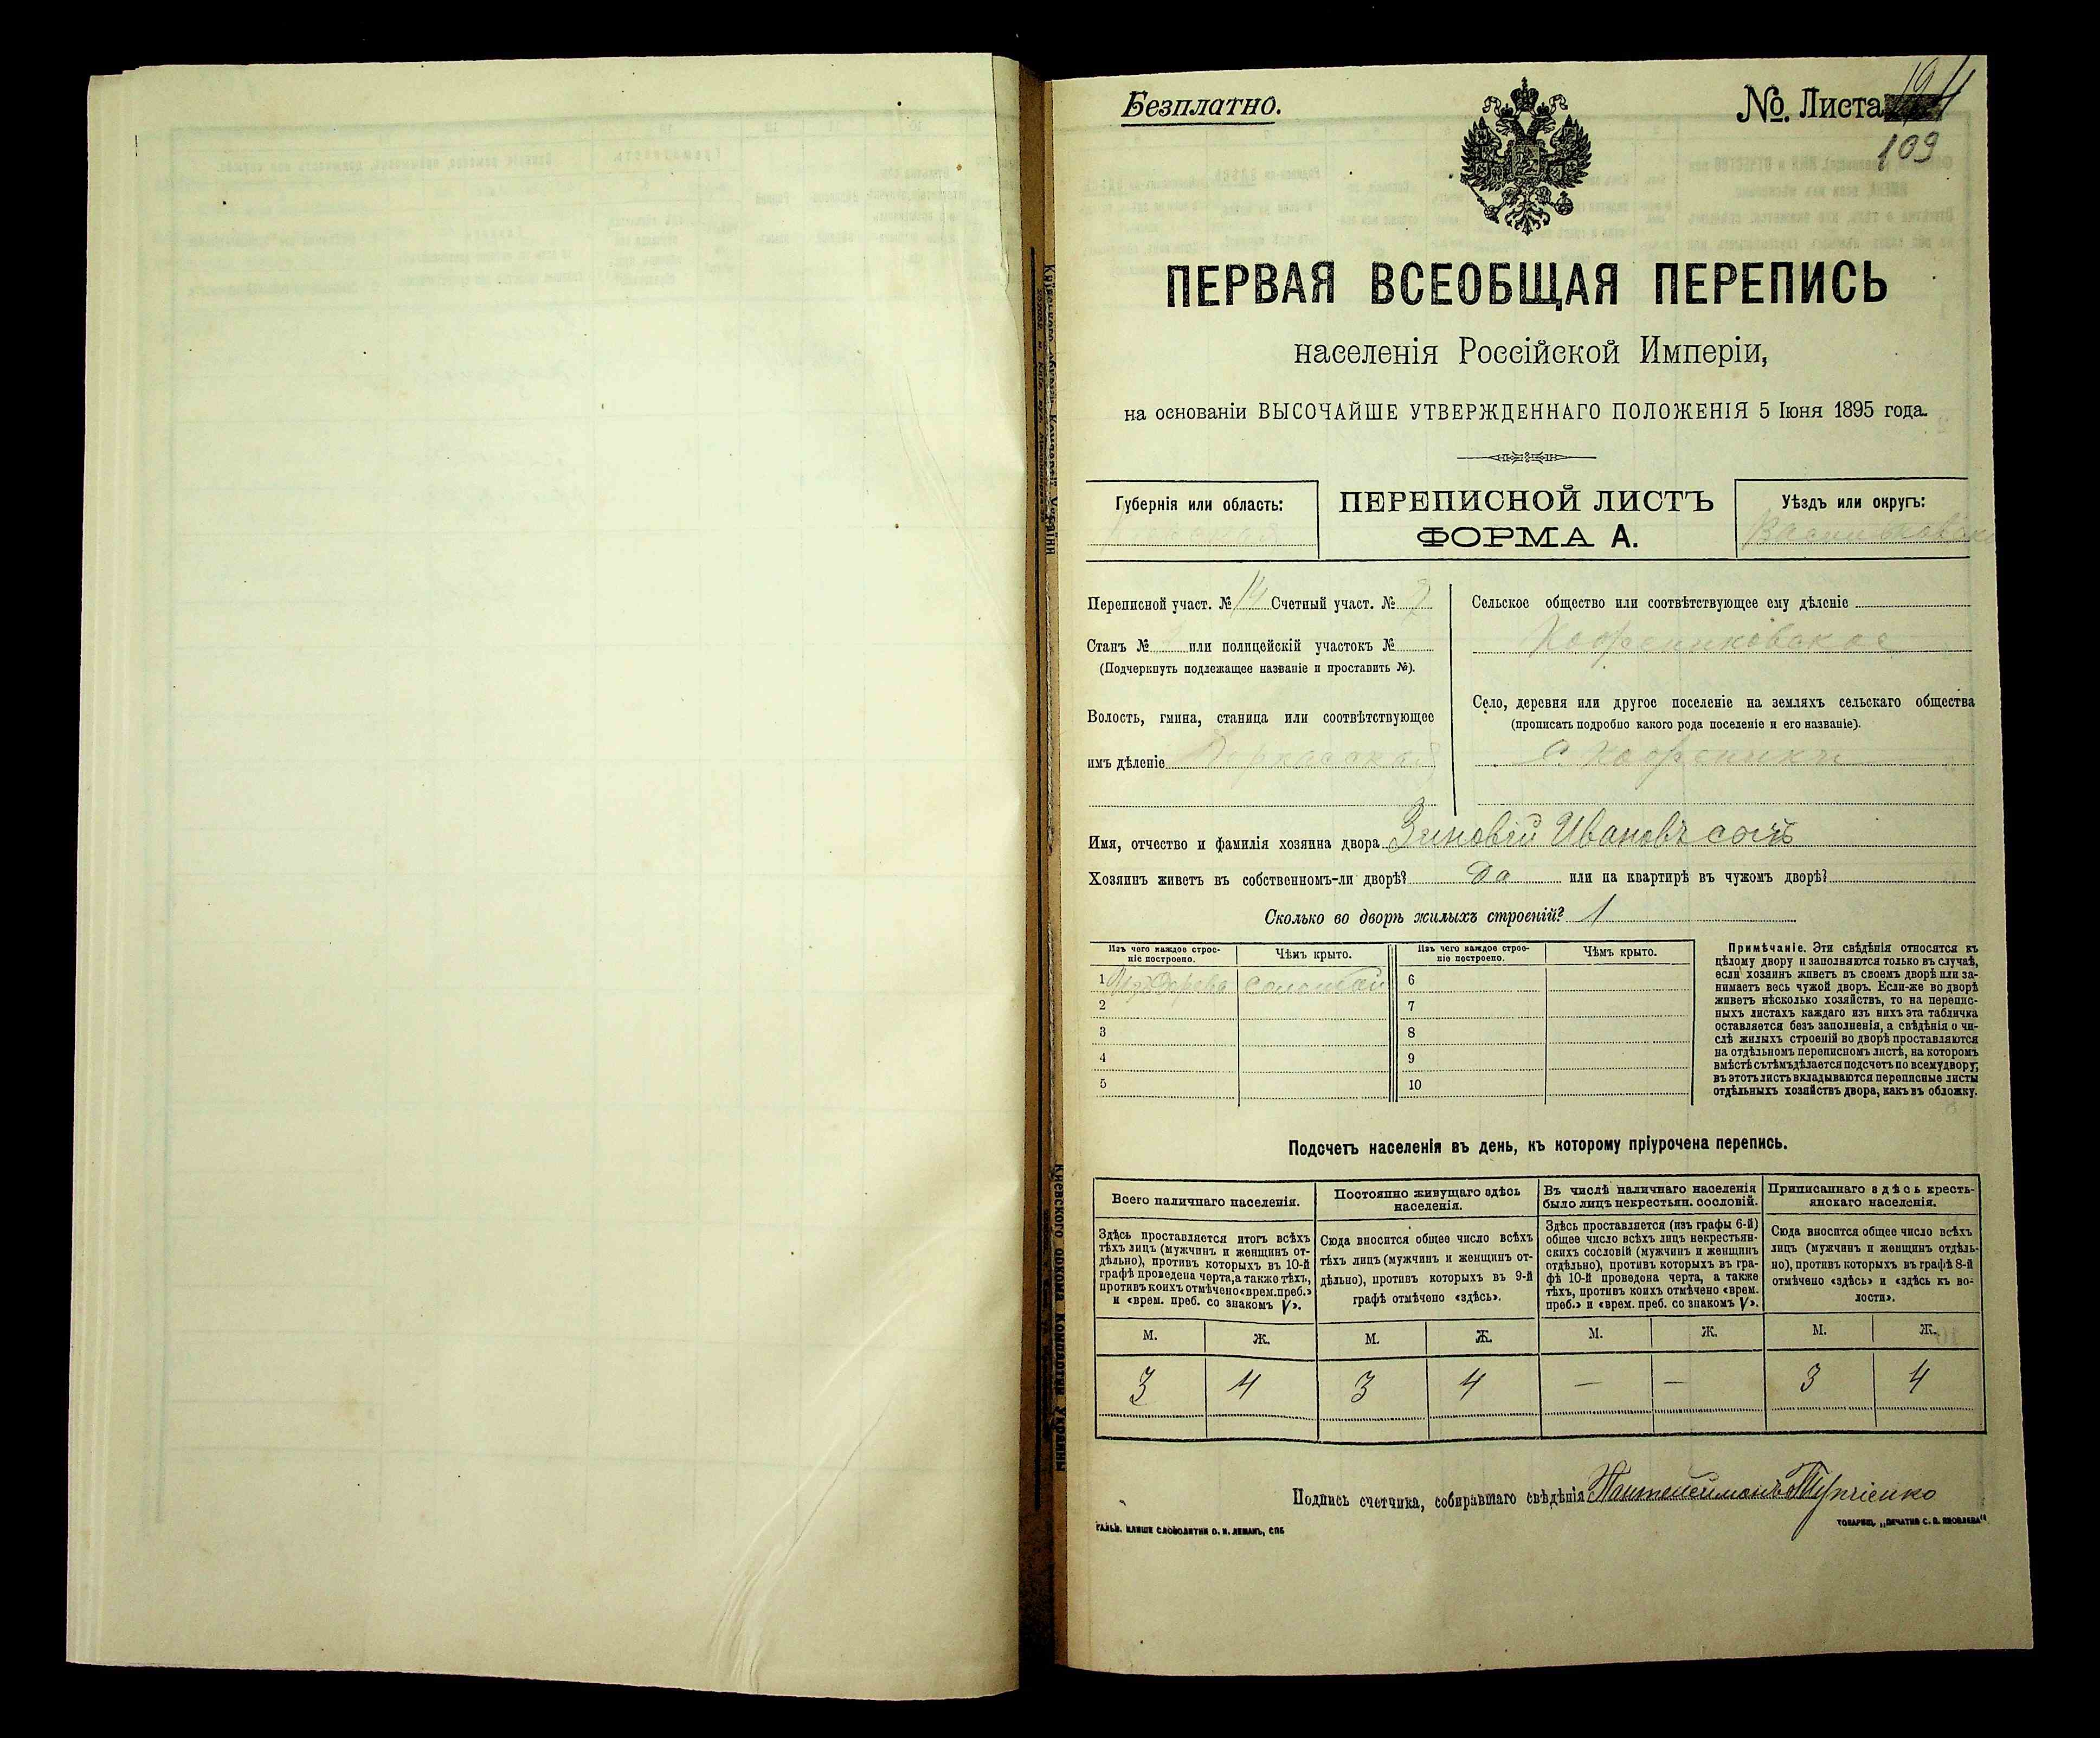 Безплатно.
№. Листа
109
ПЕРВАЯ ВСЕОБЩАЯ ПЕРЕПИСЬ
населенія Россійской Имперіи,
на основаніи ВЫСОЧАЙШЕ УТВЕРЖДЕННАГО ПОЛОЖЕНІЯ 5 Іюня 1895 года.
Губернія или область:
ПЕРЕПИСНОЙ ЛИСТЪ
ФОРМА А.
Уѣздъ или округъ:
Васильковскій
Переписной участ. № 14 Счетный участ. №
Станъ № или полицейскій участокъ №
(Подчеркнуть подлежащее названіе и проставить №).
Волость, гмина, станица или соотвѣтствующее
имъ дѣленіе
Сельское общество или соотвѣтствующее ему дѣленіе
Село, деревня или другое поселеніе на земляхъ сельскаго общества
(прописать подробно какого рода поселеніе и его названіе).
Имя, отчество и фамилія хозяина двора Зиновій Ивановъ
Хозяинъ живетъ въ собственномъ-ли дворѣ? да или на квартирѣ въ чужомъ дворѣ?
Сколько во дворѣ жилыхъ строеній? 1
Изъ чего каждое строе-
ніе построено.
Чѣмъ крыто.
1 Изъ дерева соломой
2
3
4
5
Изъ чего каждое строе-
ніе построено.
Чѣмъ крыто.
6
7
8
9
10
Примѣчаніе. Эти свѣдѣнія относятся къ
цѣлому двору и заполняются только въ случаѣ,
если хозяинъ живетъ въ своемъ дворѣ или за-
нимаетъ весь чужой дворъ. Если-же во дворѣ
живетъ нѣсколько хозяйствъ, то на перепис-
ныхъ листахъ каждаго изъ нихъ эта табличка
оставляется безъ заполненія, а свѣдѣнія о чи-
слѣ жилыхъ строеній во дворѣ проставляются
на отдѣльномъ переписномъ листѣ, на которомъ
вмѣстѣ съ тѣмъ дѣлается подсчетъ по всему двору;
въ этотъ листъ вкладываются переписные листы
отдѣльныхъ хозяйствъ двора, какъ въ обложку.
Подсчетъ населенія въ день, къ которому пріурочена перепись.
Всего наличнаго населенія.
Здѣсь проставляется итогъ всѣхъ
тѣхъ лицъ (мужчинъ и женщинъ от-
дѣльно), противъ которыхъ въ 10-й
графѣ проведена черта, а также тѣхъ,
противъ коихъ отмѣчено «врем. преб.»
и «врем. преб. со знакомъ V».
Постоянно живущаго здѣсь
населенія.
Сюда вносится общее число всѣхъ
тѣхъ лицъ (мужчинъ и женщинъ от-
дѣльно), противъ которыхъ въ 9-й
графѣ отмѣчено «здѣсь».
Въ числѣ наличнаго населенія
было лицъ некрестьян. сословій.
Здѣсь проставляется (изъ графы 6-й)
общее число всѣхъ лицъ некрестьян-
скихъ сословій (мужчинъ и женщинъ
отдѣльно), противъ которыхъ въ гра-
фѣ 10-й проведена черта, а также
тѣхъ, противъ коихъ отмѣчено «врем.
преб.» и «врем. преб. со знакомъ V».
Приписаннаго здѣсь кресть-
янскаго населенія.
Сюда вносится общее число всѣхъ
лицъ (мужчинъ и женщинъ отдѣль-
но), противъ которыхъ въ графѣ 8-й
отмѣчено «здѣсь» и «здѣсь къ во-
лости».
М. Ж. М. Ж. М. Ж. М. Ж.
3 4 3 4 — — 3 4
Подпись счетчика, собиравшаго свѣдѣнія
ГАЛЬВ. КЛИШЕ СЛОВОЛИТНИ О. И. ЛЕМАНЪ, СПБ
ТОВАРИЩ. „ПЕЧАТНЯ С. П. ЯКОВЛЕВА"